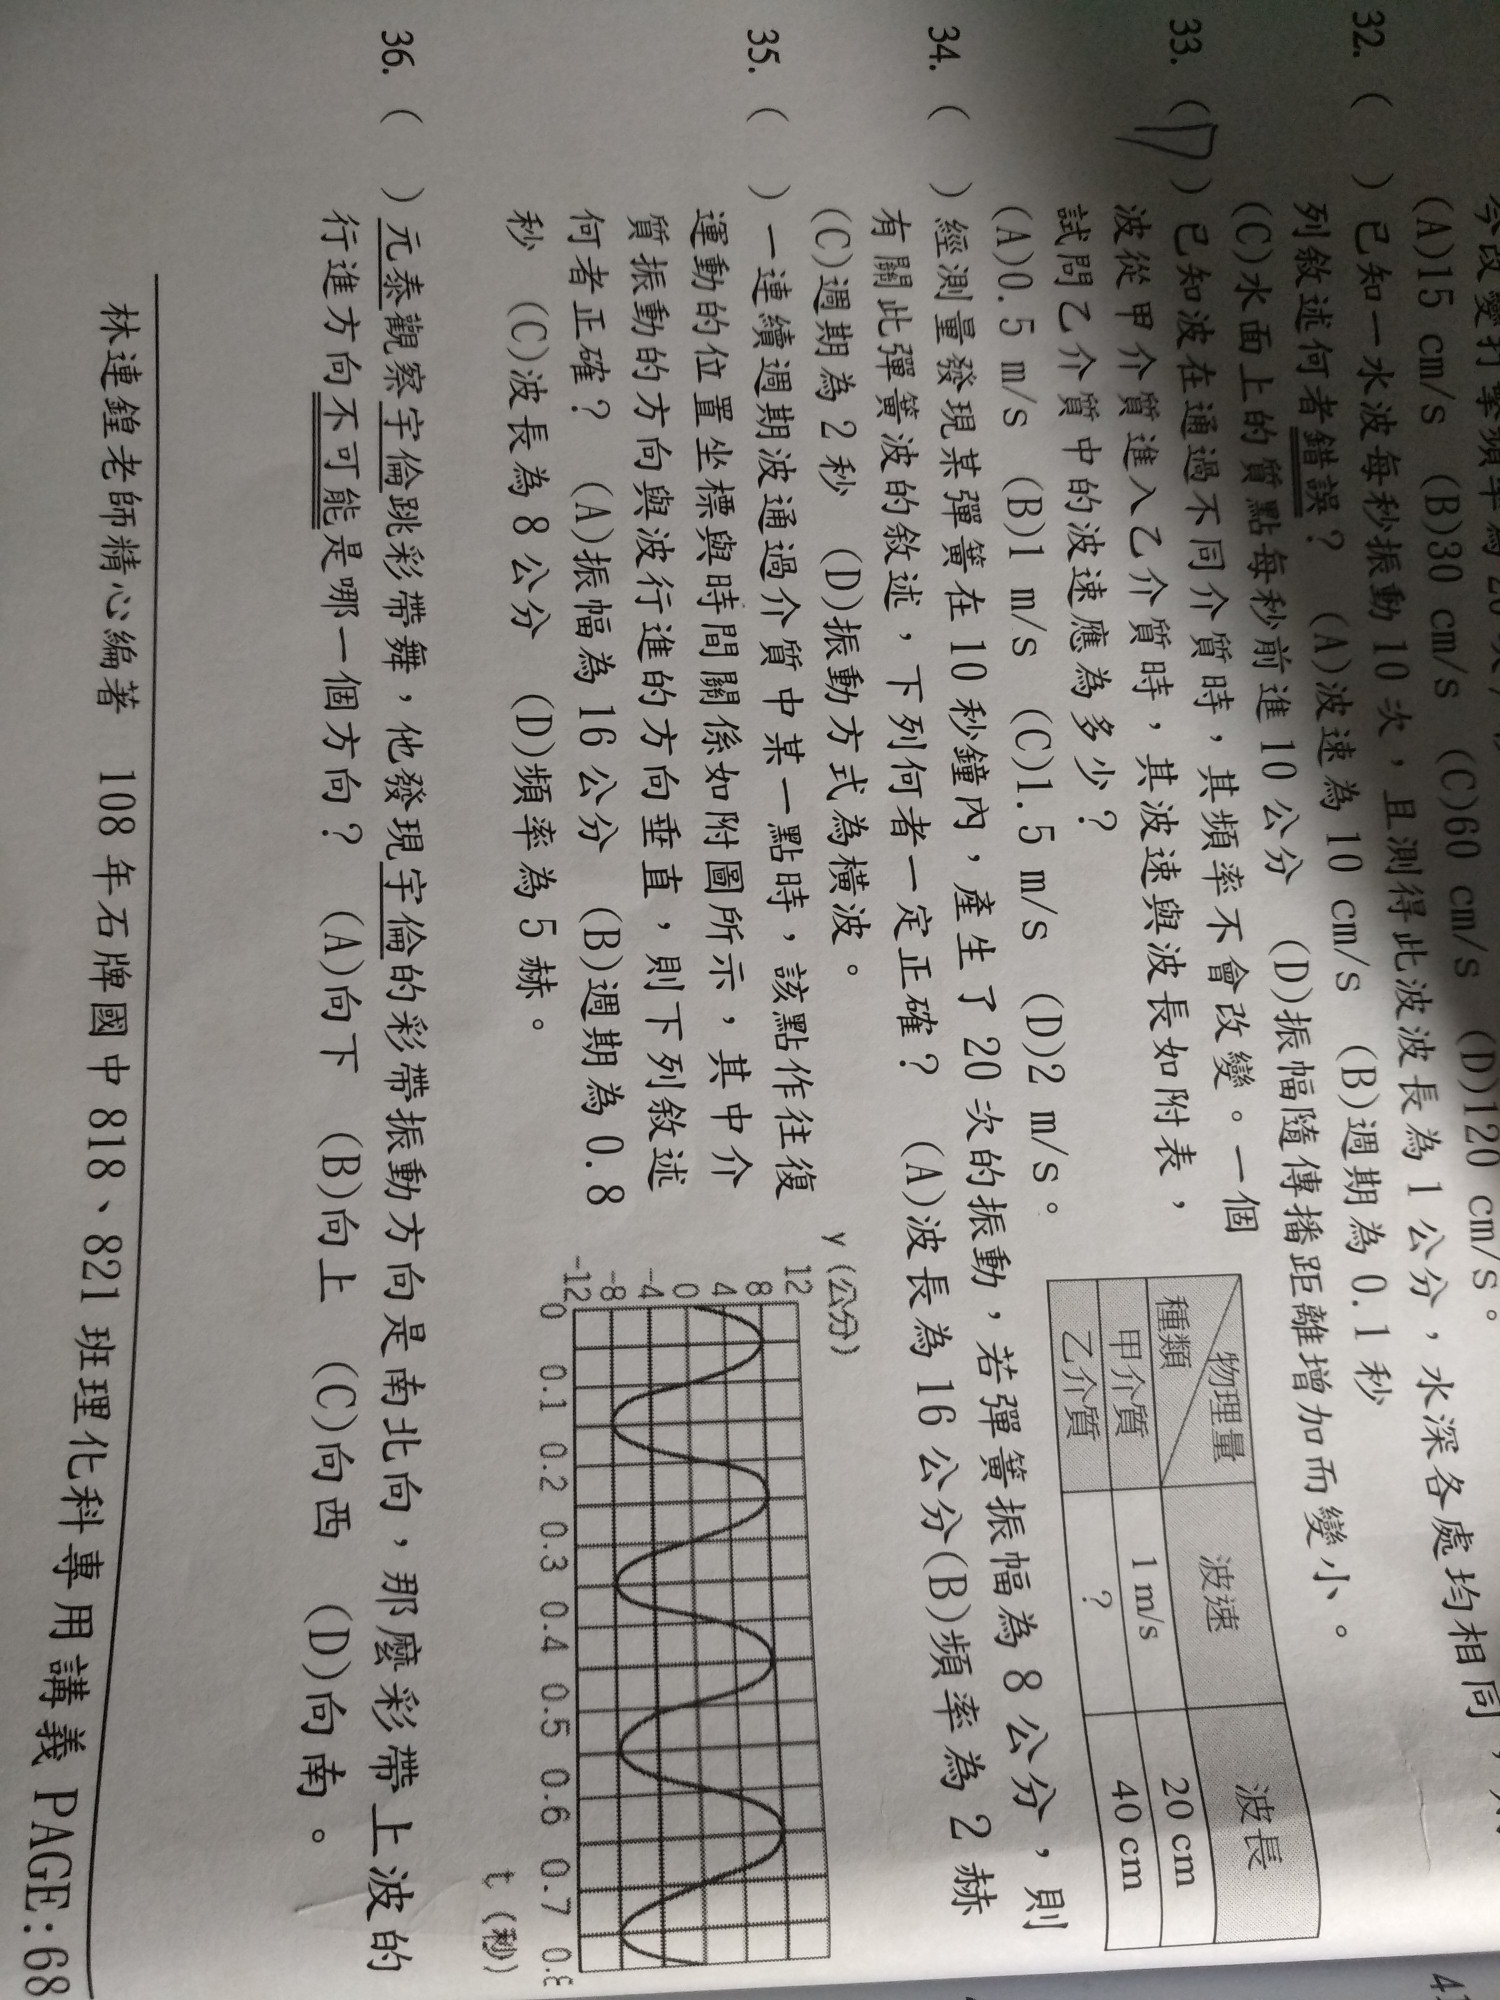 (A)15 cm/s (B)30 cm/s (C)60 cm/s (D)120 cm/s。
32. ( ) 已知一水波每秒振動 10 次，且測得此波波長為 1 公分，水深各處均相同
列敘述何者錯誤？ (A)波速為 10 cm/s (B)週期為 0.1 秒
(C)水面上的質點每秒前進 10 公分 (D)振幅隨傳播距離增加而變小。
33. (D) 已知波在通過不同介質時，其頻率不會改變。一個
波從甲介質進入乙介質時，其波速與波長如附表，
試問乙介質中的波速應為多少？
(A)0.5 m/s (B)1 m/s (C)1.5 m/s (D)2 m/s。
物理量
種類
波速
波長
甲介質 1 m/s 20 cm
乙介質 ? 40 cm
34. ( ) 經測量發現某彈簧在 10 秒鐘內，產生了 20 次的振動，若彈簧振幅為 8 公分，則
有關此彈簧波的敘述，下列何者一定正確？ (A)波長為 16 公分(B)頻率為 2 赫
(C)週期為 2 秒 (D)振動方式為橫波。
35. ( ) 一連續週期波通過介質中某一點時，該點作往復
運動的位置坐標與時間關係如附圖所示，其中介
質振動的方向與波行進的方向垂直，則下列敘述
何者正確？ (A)振幅為 16 公分 (B)週期為 0.8
秒 (C)波長為 8 公分 (D)頻率為 5 赫。
y (公分)
12
8
4
0
-4
-8
-12
0 0.1 0.2 0.3 0.4 0.5 0.6 0.7
t (秒)
36. ( ) 元泰觀察宇倫跳彩帶舞，他發現宇倫的彩帶振動方向是南北向，那麼彩帶上波的
行進方向不可能是哪一個方向？ (A)向下 (B)向上 (C)向西 (D)向南。
林連鍠老師精心編著 108 年石牌國中 818、821 班理化科專用講義 PAGE:68